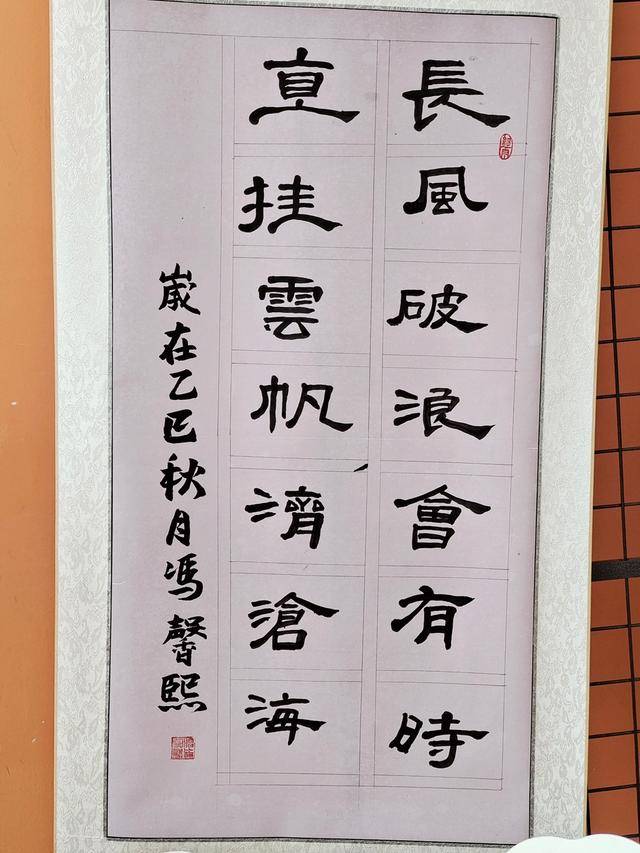 長風破浪會有時
直挂雲帆濟滄海
歲在乙巳秋月馮馨熙